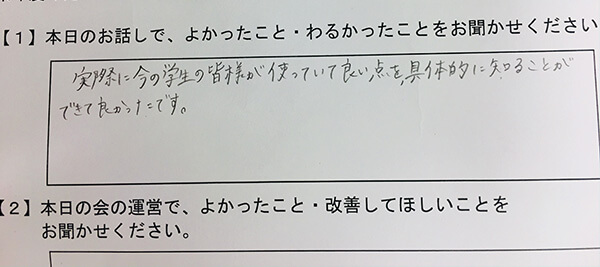 【１】本日のお話しで、よかったこと・わるかったことをお聞かせください
実際に今の学生の皆様が使っていて良い点を、具体的に知ることが
できて良かったです。
【２】本日の会の運営で、よかったこと・改善してほしいことを
お聞かせください。